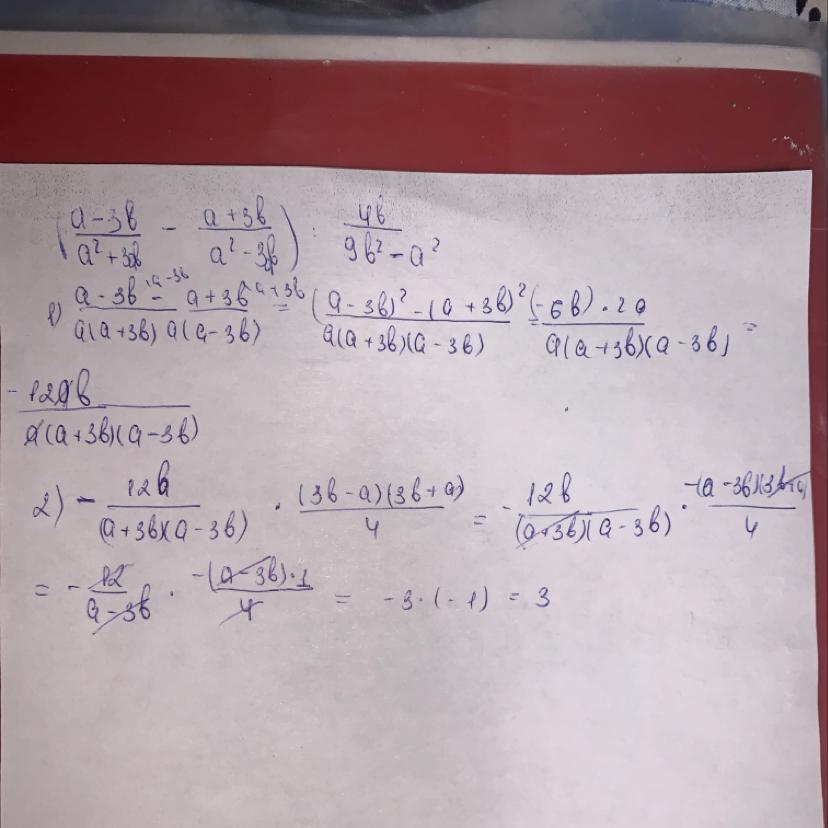 (a-3b/a²+3ab - a+3b/a²-3ab) : 4b/9b²-a²
1) a-3b \a-3b/a(a+3b) - a+3b \a+3b/a(a-3b) = (a-3b)²-(a+3b)²/a(a+3b)(a-3b) = (-6b)·2a/a(a+3b)(a-3b) =
-12ab/a(a+3b)(a-3b)
2) - 12b/(a+3b)(a-3b) · (3b-a)(3b+a)/4 = - 12b/(a+3b)(a-3b) · -(a-3b)(3b+a)/4
= - 12/a-3b · -(a-3b)·1/4 = -3·(-1) = 3